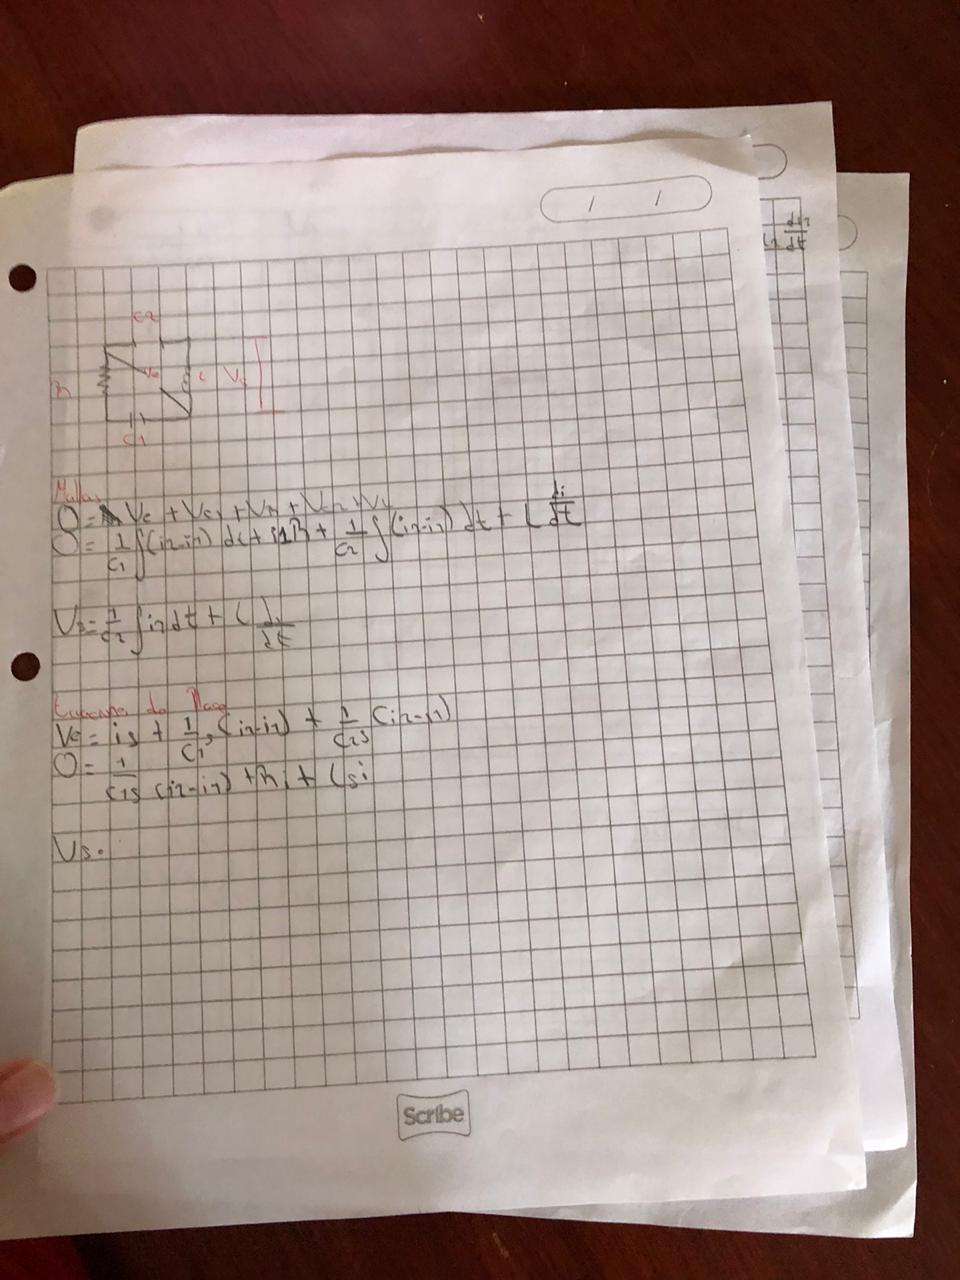 / /
di1
dt
C2
R
Ve
L
Vs
C1
Mallas
0 = Ve + Vc1 + VR + Vc2 + VL
0 = 1/C1 ∫(i2-i1) dt + i1R + 1/C2 ∫(i2-i1) dt + L di/dt
Vs = 1/C2 ∫i2dt + L di/dt
de
Ve = is + 1/C1s (i2-i1) + 1/C2s (i2-i1)
0 = 1/C1s (i2-i1) + Ri + Lsi
Vs.
Scribe